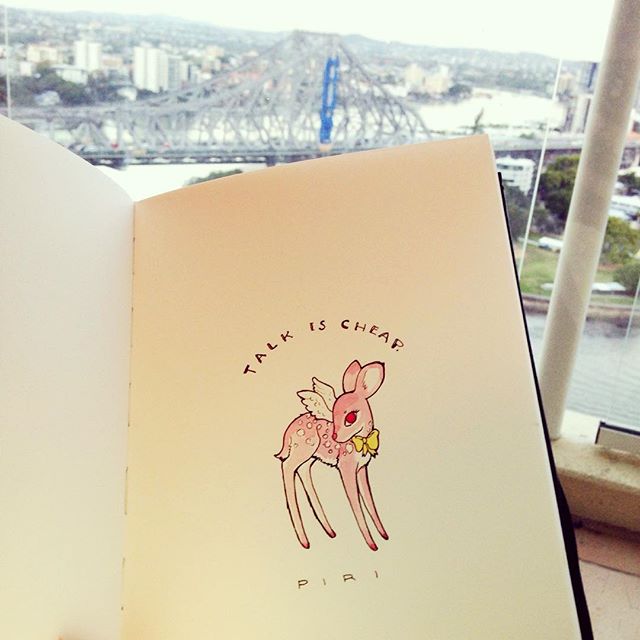 TALK IS CHEAP.
PIRI